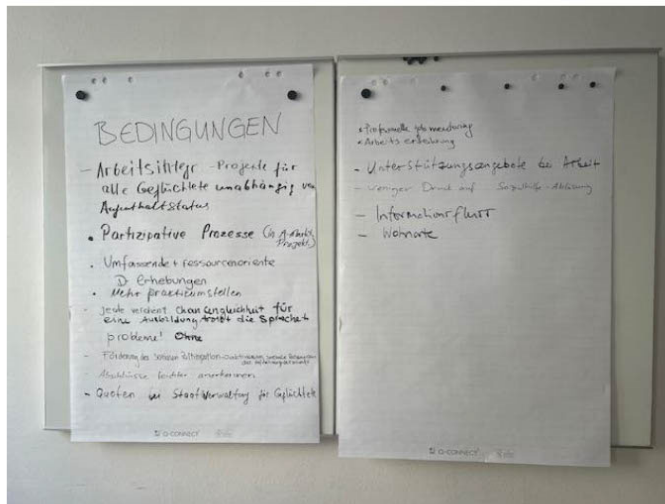 BEDINGUNGEN
- Arbeitsintegr. - Projekte für
alle Geflüchtete unabhängig von
Aufenthaltsstatus
• Partizipative Prozesse (in A-markt,
Projekt)
• Umfassende + ressourcenoriente
Erhebungen
• Mehr praktikumstellen
- Jede verdient Chancengleichheit für
eine Ausbildung trotz die Sprachen
probleme! Ohne
- Förderung der sozialen Partizipation
Abschlüsse leichter anerkennen
- Quoten bei Staatverwaltung für Geflüchtete
Q-CONNECT
• Professionelle Jobmentoring
• Arbeitserfahrung
- Unterstützungsangebote bei Arbeit
- weniger Druck auf Sozialhilfe-Ablösung
- Informationsfluss
- Wohnorte
Q-CONNECT